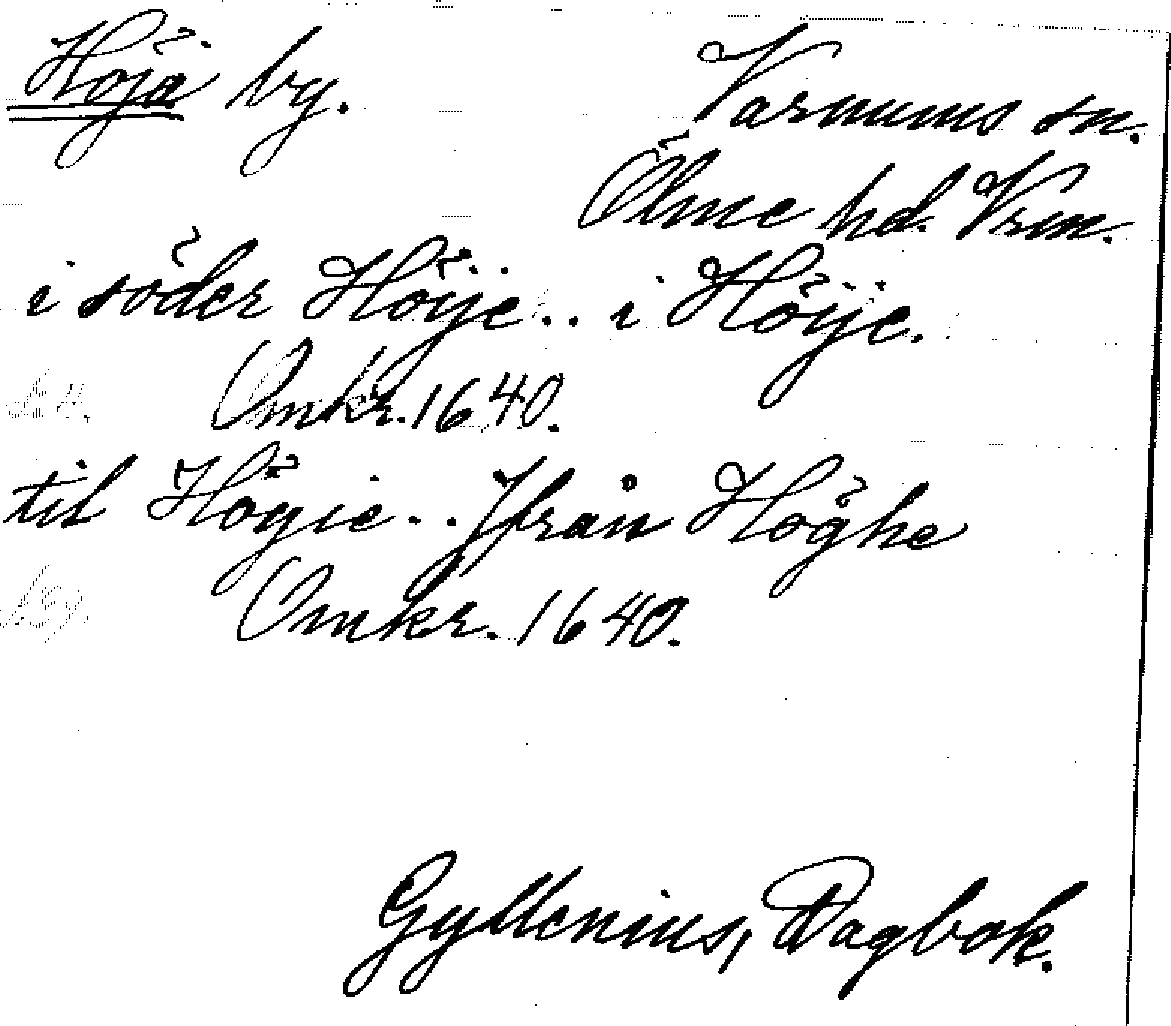 Höja by.
Varnums sn.
Ölme hd. Vrm.
i söder Höije.. i Höije.
Omkr. 1640.
til Högie.. Ifrån Höghe
Omkr. 1640.
Gyllenius, Dagbok.